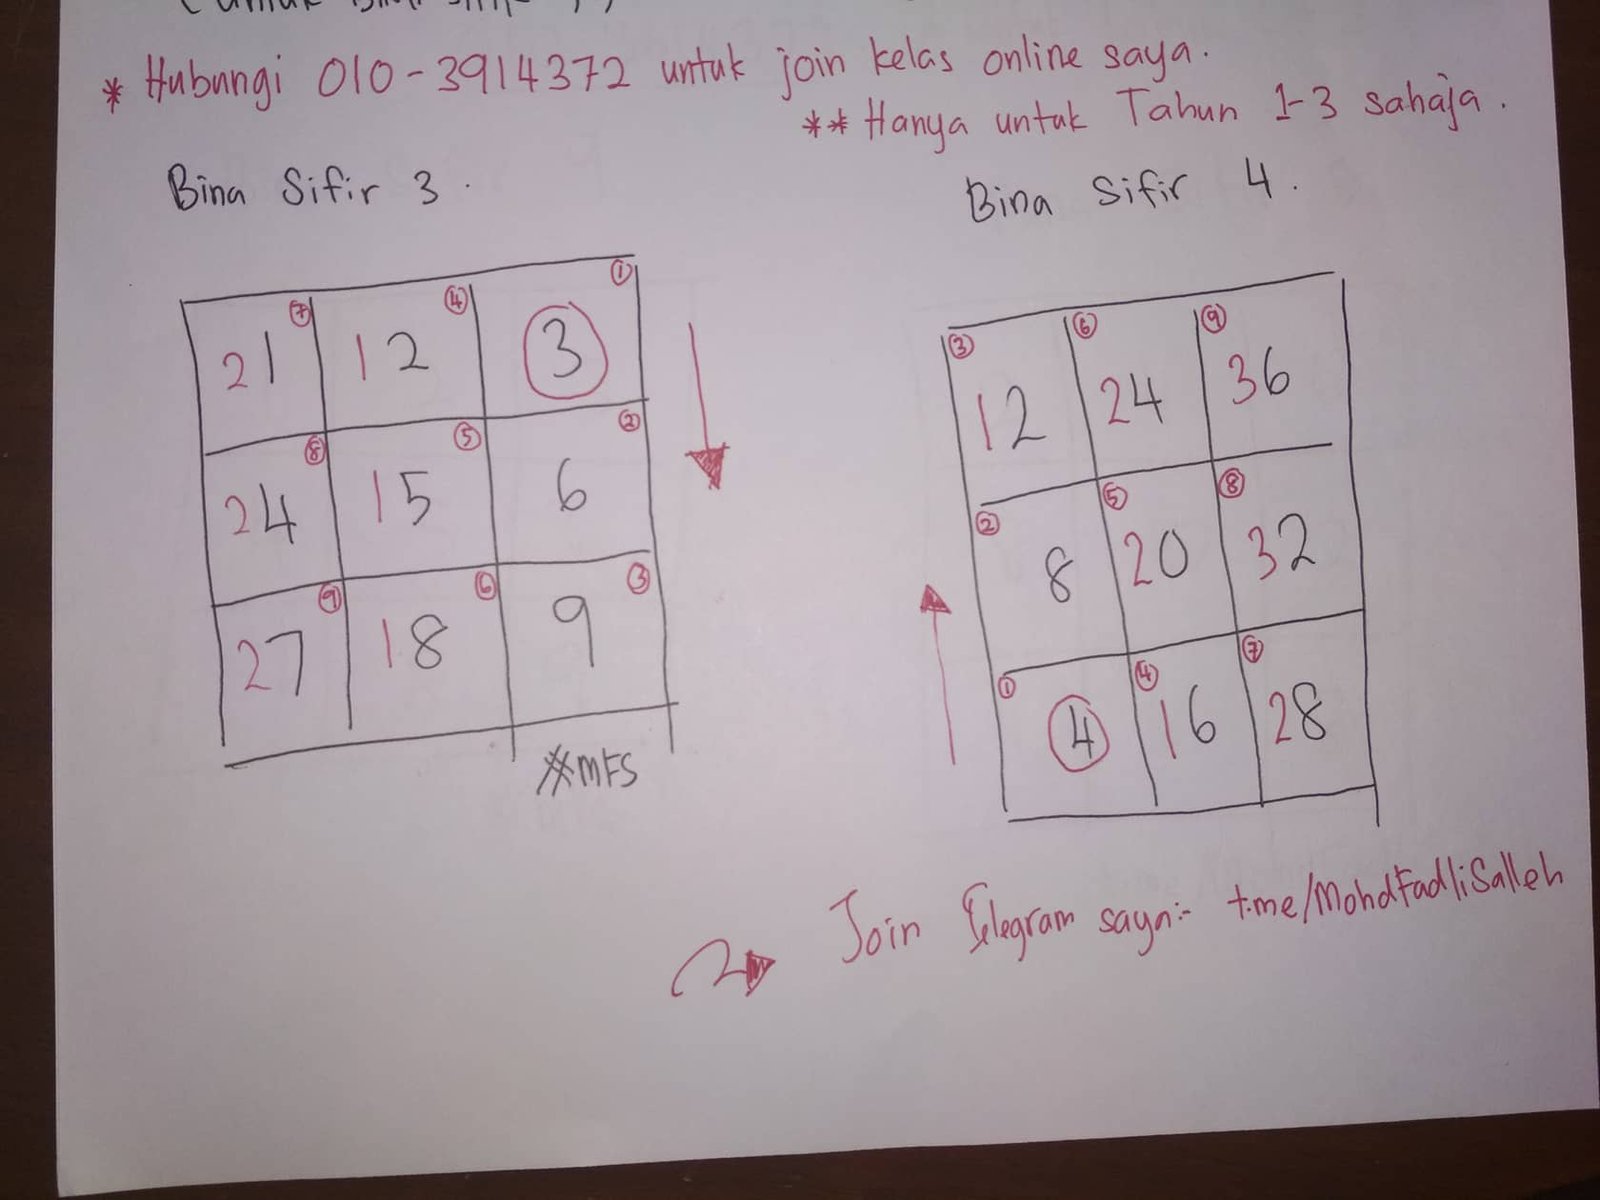 * Hubungi 010-3914372 untuk join kelas online saya.
** Hanya untuk Tahun 1-3 sahaja.
Bina Sifir 3.
⑦ ④ ①
21 12 3
⑧ ⑤ ②
24 15 6
⑨ ⑥ ③
27 18 9
#MFS
Bina Sifir 4.
③ ⑥ ⑨
12 24 36
② ⑤ ⑧
8 20 32
① ④ ⑦
4 16 28
Join Telegram saya:- t.me/MohdFadliSalleh